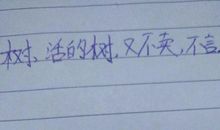 树、活的树,又不卖,不言